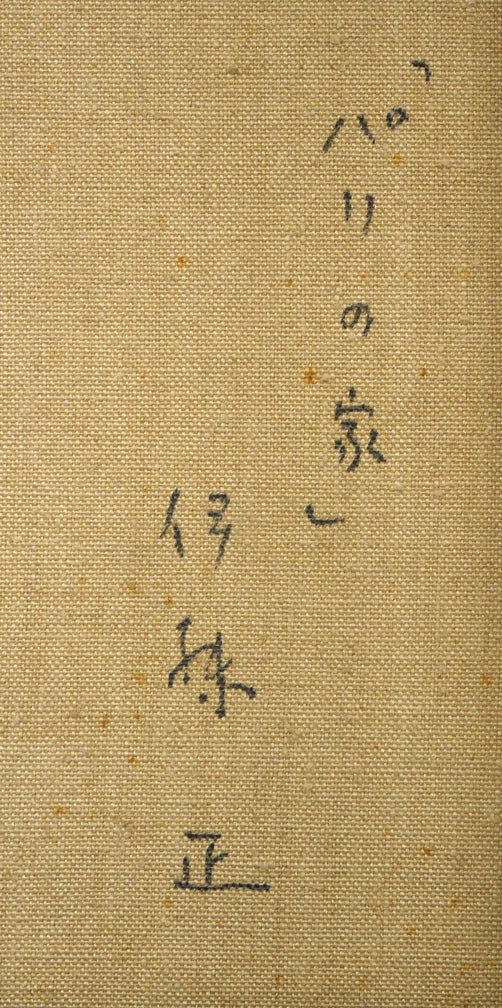 「パリの家」
伊藤 正